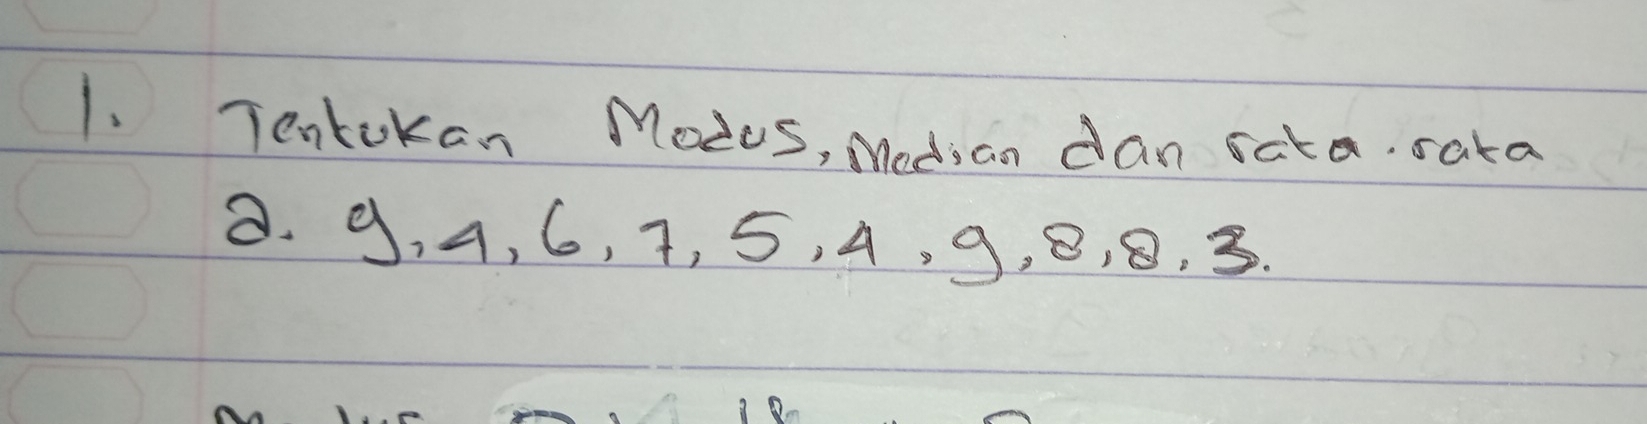 1. Tentukan Modus, Median dan rata-rata
a. 9, 4, 6, 7, 5, 4, 9, 8, 8, 3.